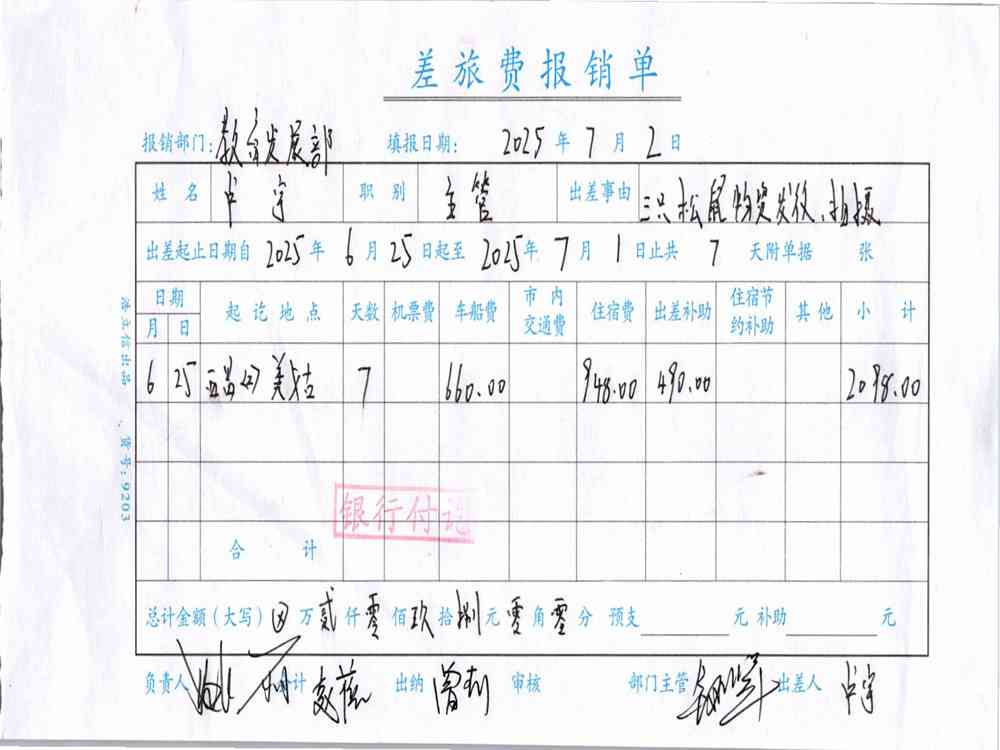 差旅费报销单
报销部门: 教育发展部 填报日期: 2025 年 7 月 2 日
姓名 职别 主管 出差事由 三只松鼠物资发放、拍摄
出差起止日期自 2025 年 6 月 25 日起至 2025 年 7 月 1 日止共 7 天附单据 张
日期 起讫地点 天数 机票费 车船费 市内交通费 住宿费 出差补助 住宿节约补助 其他 小计
月 日
6 25 美姑 7 660.00 948.00 490.00 2098.00
银行付讫
合计
总计金额(大写) 万 贰 仟 零 佰 玖 拾 捌 元 零 角 零 分 预支 元 补助 元
负责人 会计 出纳 审核 部门主管 出差人
浩立信出品 货号:9203